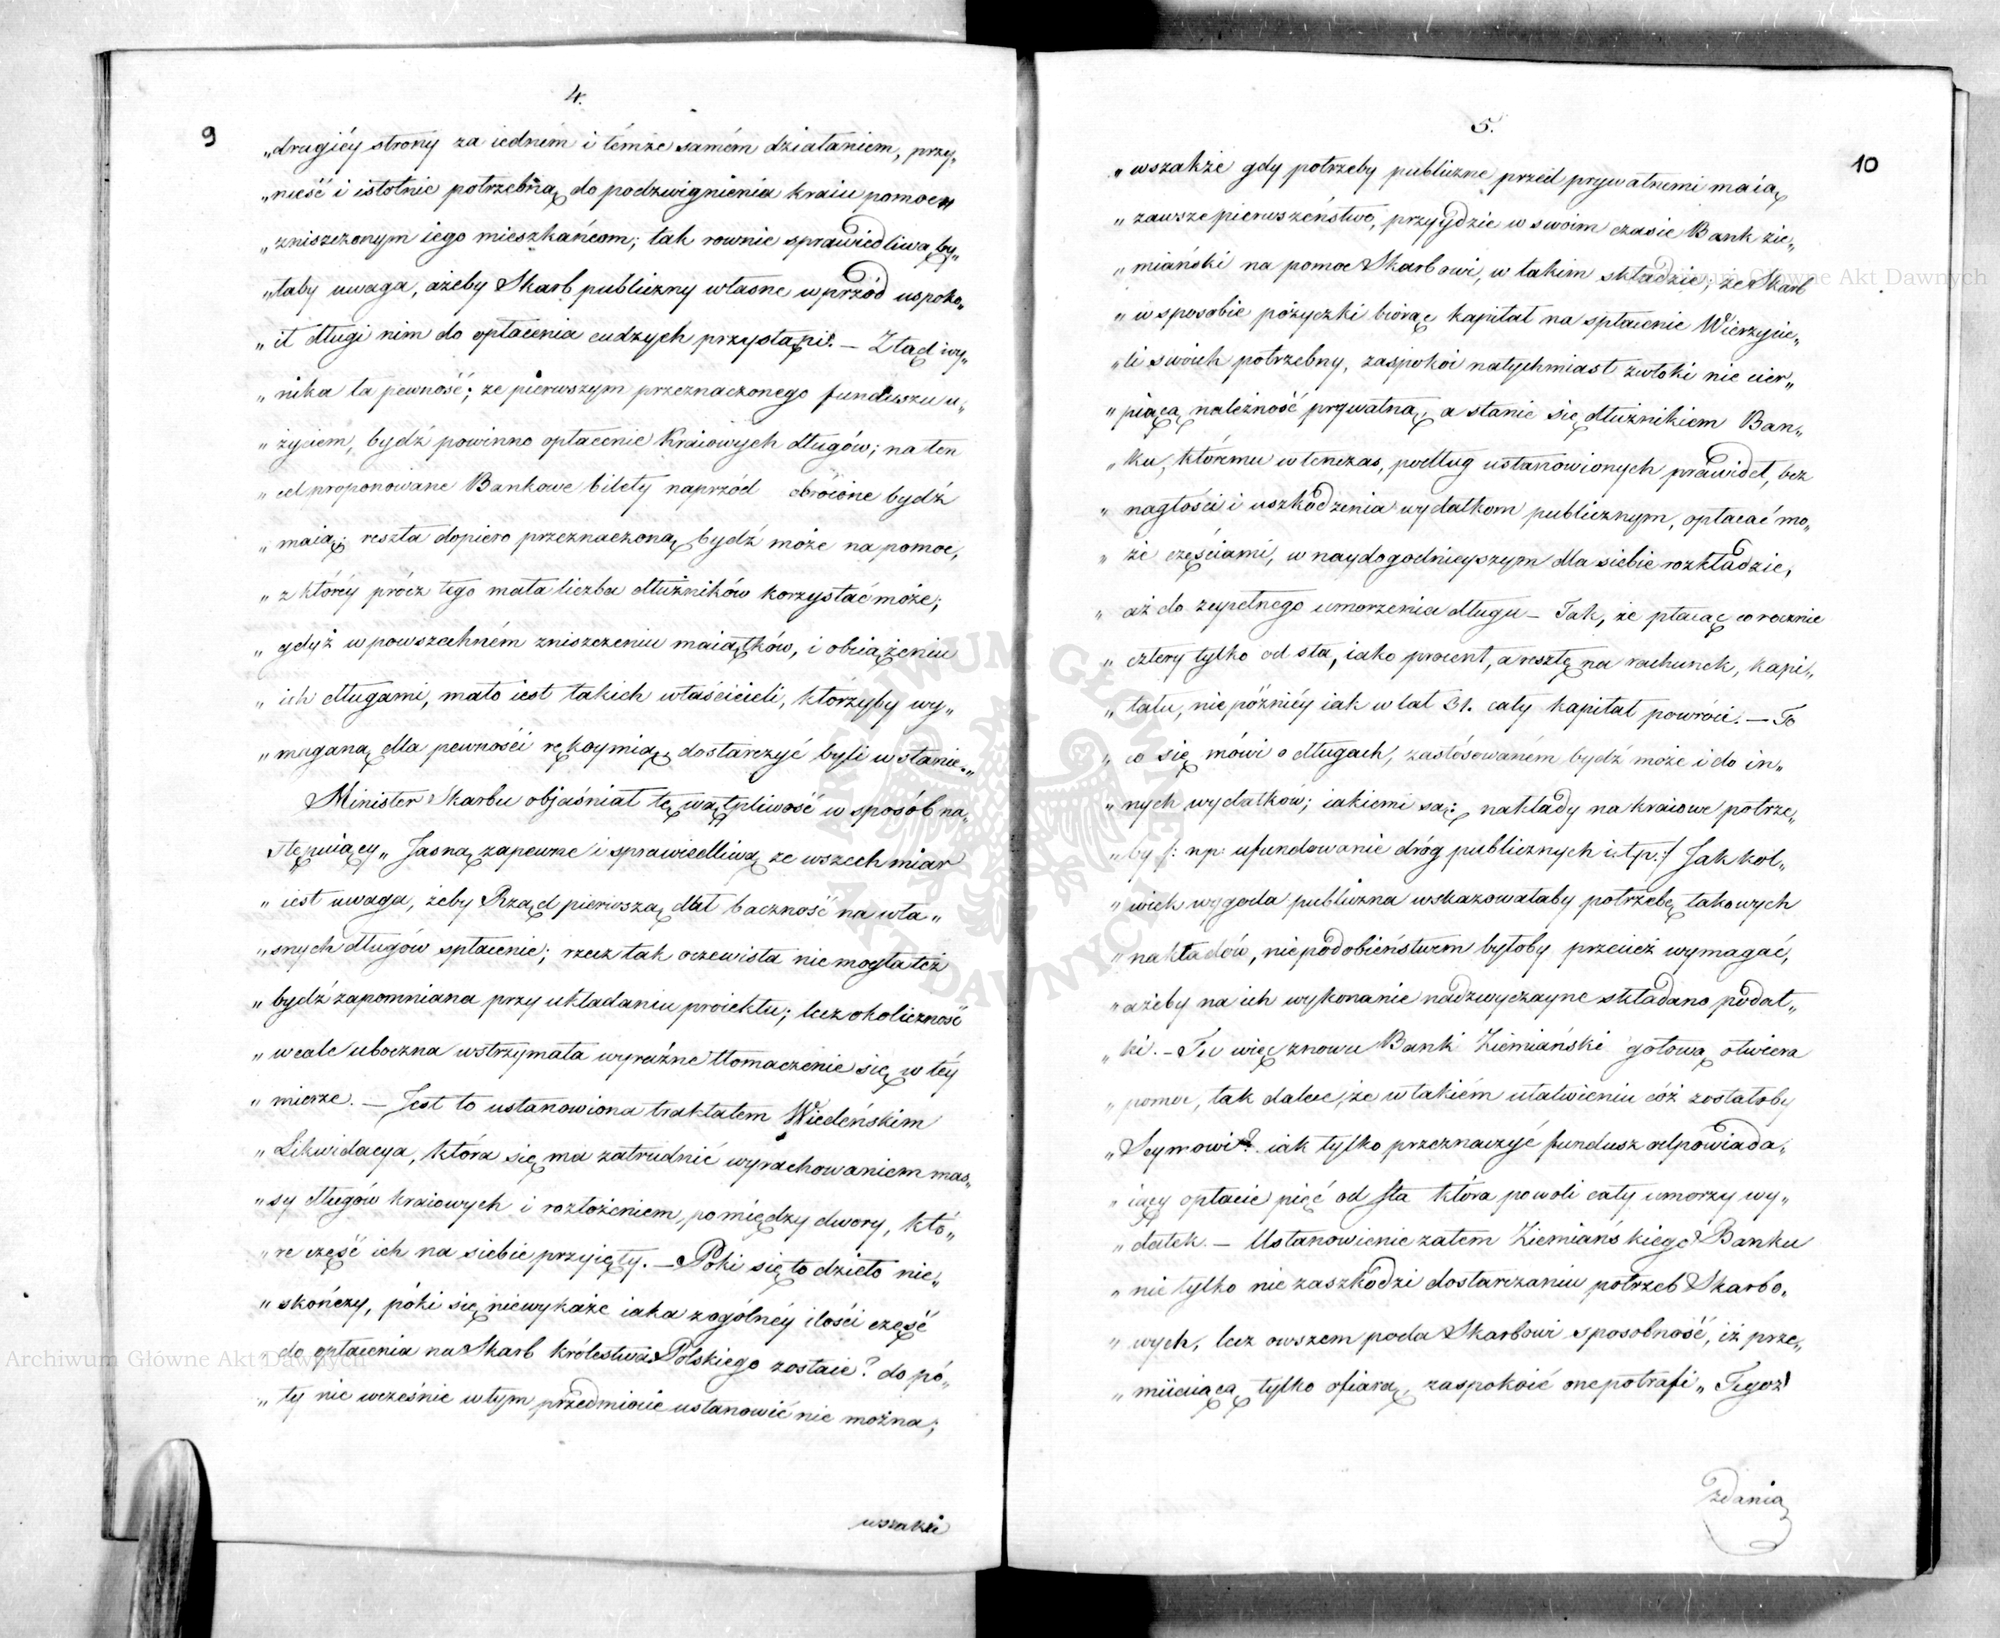 4.
9
„drugiéy strony za iedném i témże samém działaniem, przy„
„nieść i istotnie potrzebną do podzwignienia kraiu pomoc„
„zniszczonym iego mieszkańcom; tak rownie sprawiedliwą by„
„łaby uwaga, ażeby Skarb publiczny własne wprzód uspoko„
„ił długi nim do opłacenia cudzych przystąpi. — Ztąd wy„
„nika ta pewność; że pierwszym przeznaczonego funduszu u„
„życiem, bydź powinno opłacenie kraiowych długów; na ten
„cel proponowane Bankowe bilety naprzód obrócone bydź
„maią; reszta dopiero przeznaczoną bydź może na pomoc,
„z któréy prócz tego mała liczba dłużników korzystać może;
„gdyż w powszechném zniszczeniu maiątków, i obciążeniu
„ich długami, mało iest takich właścicieli, którzyby wy„
„maganą dla pewności rękoymią, dostarczyć byli w stanie.„
Minister Skarbu objaśniał tę wątpliwość w sposób na„
stępuiący „Jasną zapewne i sprawiedliwą ze wszech miar
„iest uwaga, żeby Rząd pierwszą dał baczność na wła„
„snych długów spłacenie; rzecz tak oczewista nie mogła też
„bydź zapomniana przy układaniu proiektu; lecz okoliczność
„wcale uboczna wstrzymała wyraźne tłomaczenie się w téy
„mierze. — Jest to ustanowiona traktatem Wiedeńskim
„Likwidacya, która się ma zatrudnić wyrachowaniem mas„
„sy długów kraiowych i rozłożeniem pomiędzy dwory, któ„
„re część ich na siebie przyięły. — Póki się to dzieło nie„
„skończy, póki się niewykaże iaka z ogólnéy ilości część
„do opłacenia na Skarb królestwa Polskiego zostaie? do pó„
„ty nic wcześnie w tym przedmiocie ustanowić nie można;
wszakże
5.
10
„wszakże gdy potrzeby publiczne przed prywatnemi maią
„zawsze pierwszeństwo, przyydzie w swoim czasie Bank zie„
„miański na pomoc Skarbowi, w takim składzie; że Skarb
„w sposobie pożyczki biorąc kapitał na spłacenie Wierzycie„
„li swoich potrzebny, zaspokoi natychmiast zwłoki nie cier„
„piącą należność prywatną, a stanie się dłużnikiem Ban„
„ku, któremu wtenczas, podług ustanowionych prawideł, bez
„nagłości i uszkodzenia wydatkom publicznym, opłacać mo„
„że częściami, w naydogodnieyszym dla siebie rozkładzie,
„aż do zupełnego umorzenia długu — Tak, że płacąc corocznie
„cztery tylko od sta, iako procent, a resztę na rachunek, kapi„
„tału, niepóźniéy iak w lat 31. cały kapitał powróci. — To
„co się mówi o długach, zastósowaném bydź może i do in„
„nych wydatków; iakiemi są: nakłady na kraiowe potrze„
„by /: np: ufundowanie dróg publicznych i.t.p.:/ Jak kol„
„wiek wygoda publiczna wskazowałaby potrzebę takowych
„nakładów, niepodobieństwem byłoby przecież wymagać,
„ażeby na ich wykonanie nadzwyczayne składano podat„
„ki. — Tu więc znowu Bank Ziemiański gotową otwiera
„pomoc, tak dalece, że w takiém ułatwieniu cóż zostałoby
„Seymowi? iak tylko przeznaczyć fundusz odpowiada„
„iący opłacie pięć od sta która powoli cały umorzy wy„
„datek. — Ustanowienie zatem Ziemiańskiego Banku
„nie tylko nie zaszkodzi dostarczaniu potrzeb Skarbo„
„wych, lecz owszem poda Skarbowi sposobność, iż prze„
„miiaiącą tylko ofiarą, zaspokoić one potrafi„ Tegoż
zdania
Archiwum Główne Akt Dawnych
Archiwum Główne Akt Dawnych
ARCHIWUM GŁÓWNE AKT DAWNYCH